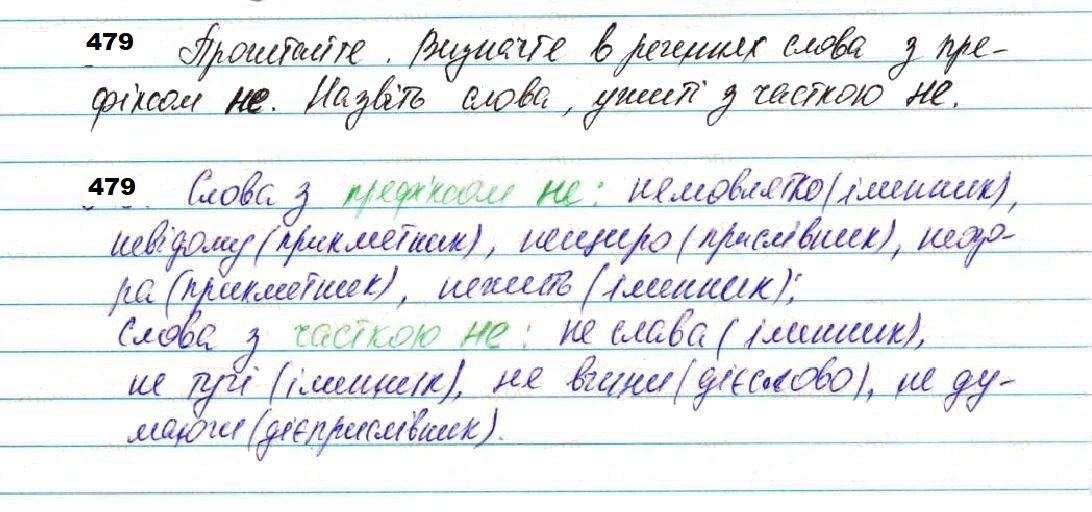 479 Прочитайте. Визначте в реченнях слова з пре-
фіксом не. Назвіть слова, ужиті з часткою не.
479 Слова з префіксом не: немовлятко (іменник),
невідому (прикметник), нещиро (прислівник), недо-
ра (прикметник), нежить (іменник);
Слова з часткою не: не слава (іменник),
не тучі (іменник), не вчини (дієслово), не ду-
маючи (дієприслівник).